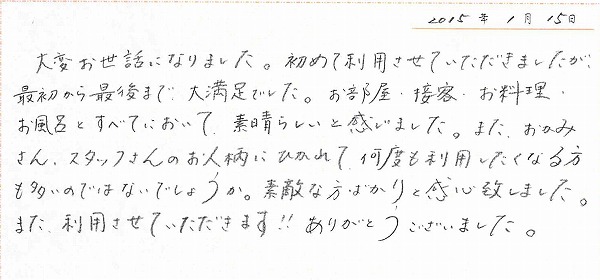 2015年 1月 15日
大変お世話になりました。初めて利用させていただきましたが、
最初から最後まで、大満足でした。お部屋・接客・お料理・
お風呂とすべてにおいて、素晴らしいと感じました。また、おかみ
さん、スタッフさんのお人柄にひかれて、何度も利用したくなる方
も多いのではないでしょうか。素敵な方ばかりと感心致しました。
また、利用させていただきます!! ありがとうございました。